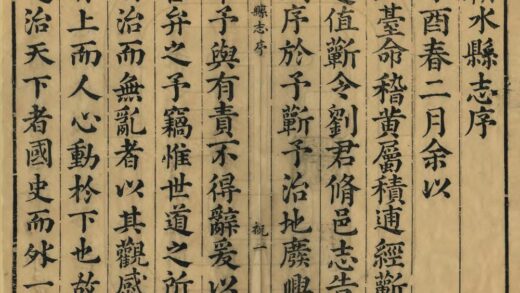 水縣志序
酉春二月余以
臺命稽黄屬積逋經蘄
值蘄令劉君脩邑志告
序於予蘄予治地廢興
縣志序 一
予與有責不得辭爰以
弁之予竊惟世道之所
治而無亂者以其觀感
上而人心動於下也故
治天下者國史而外一